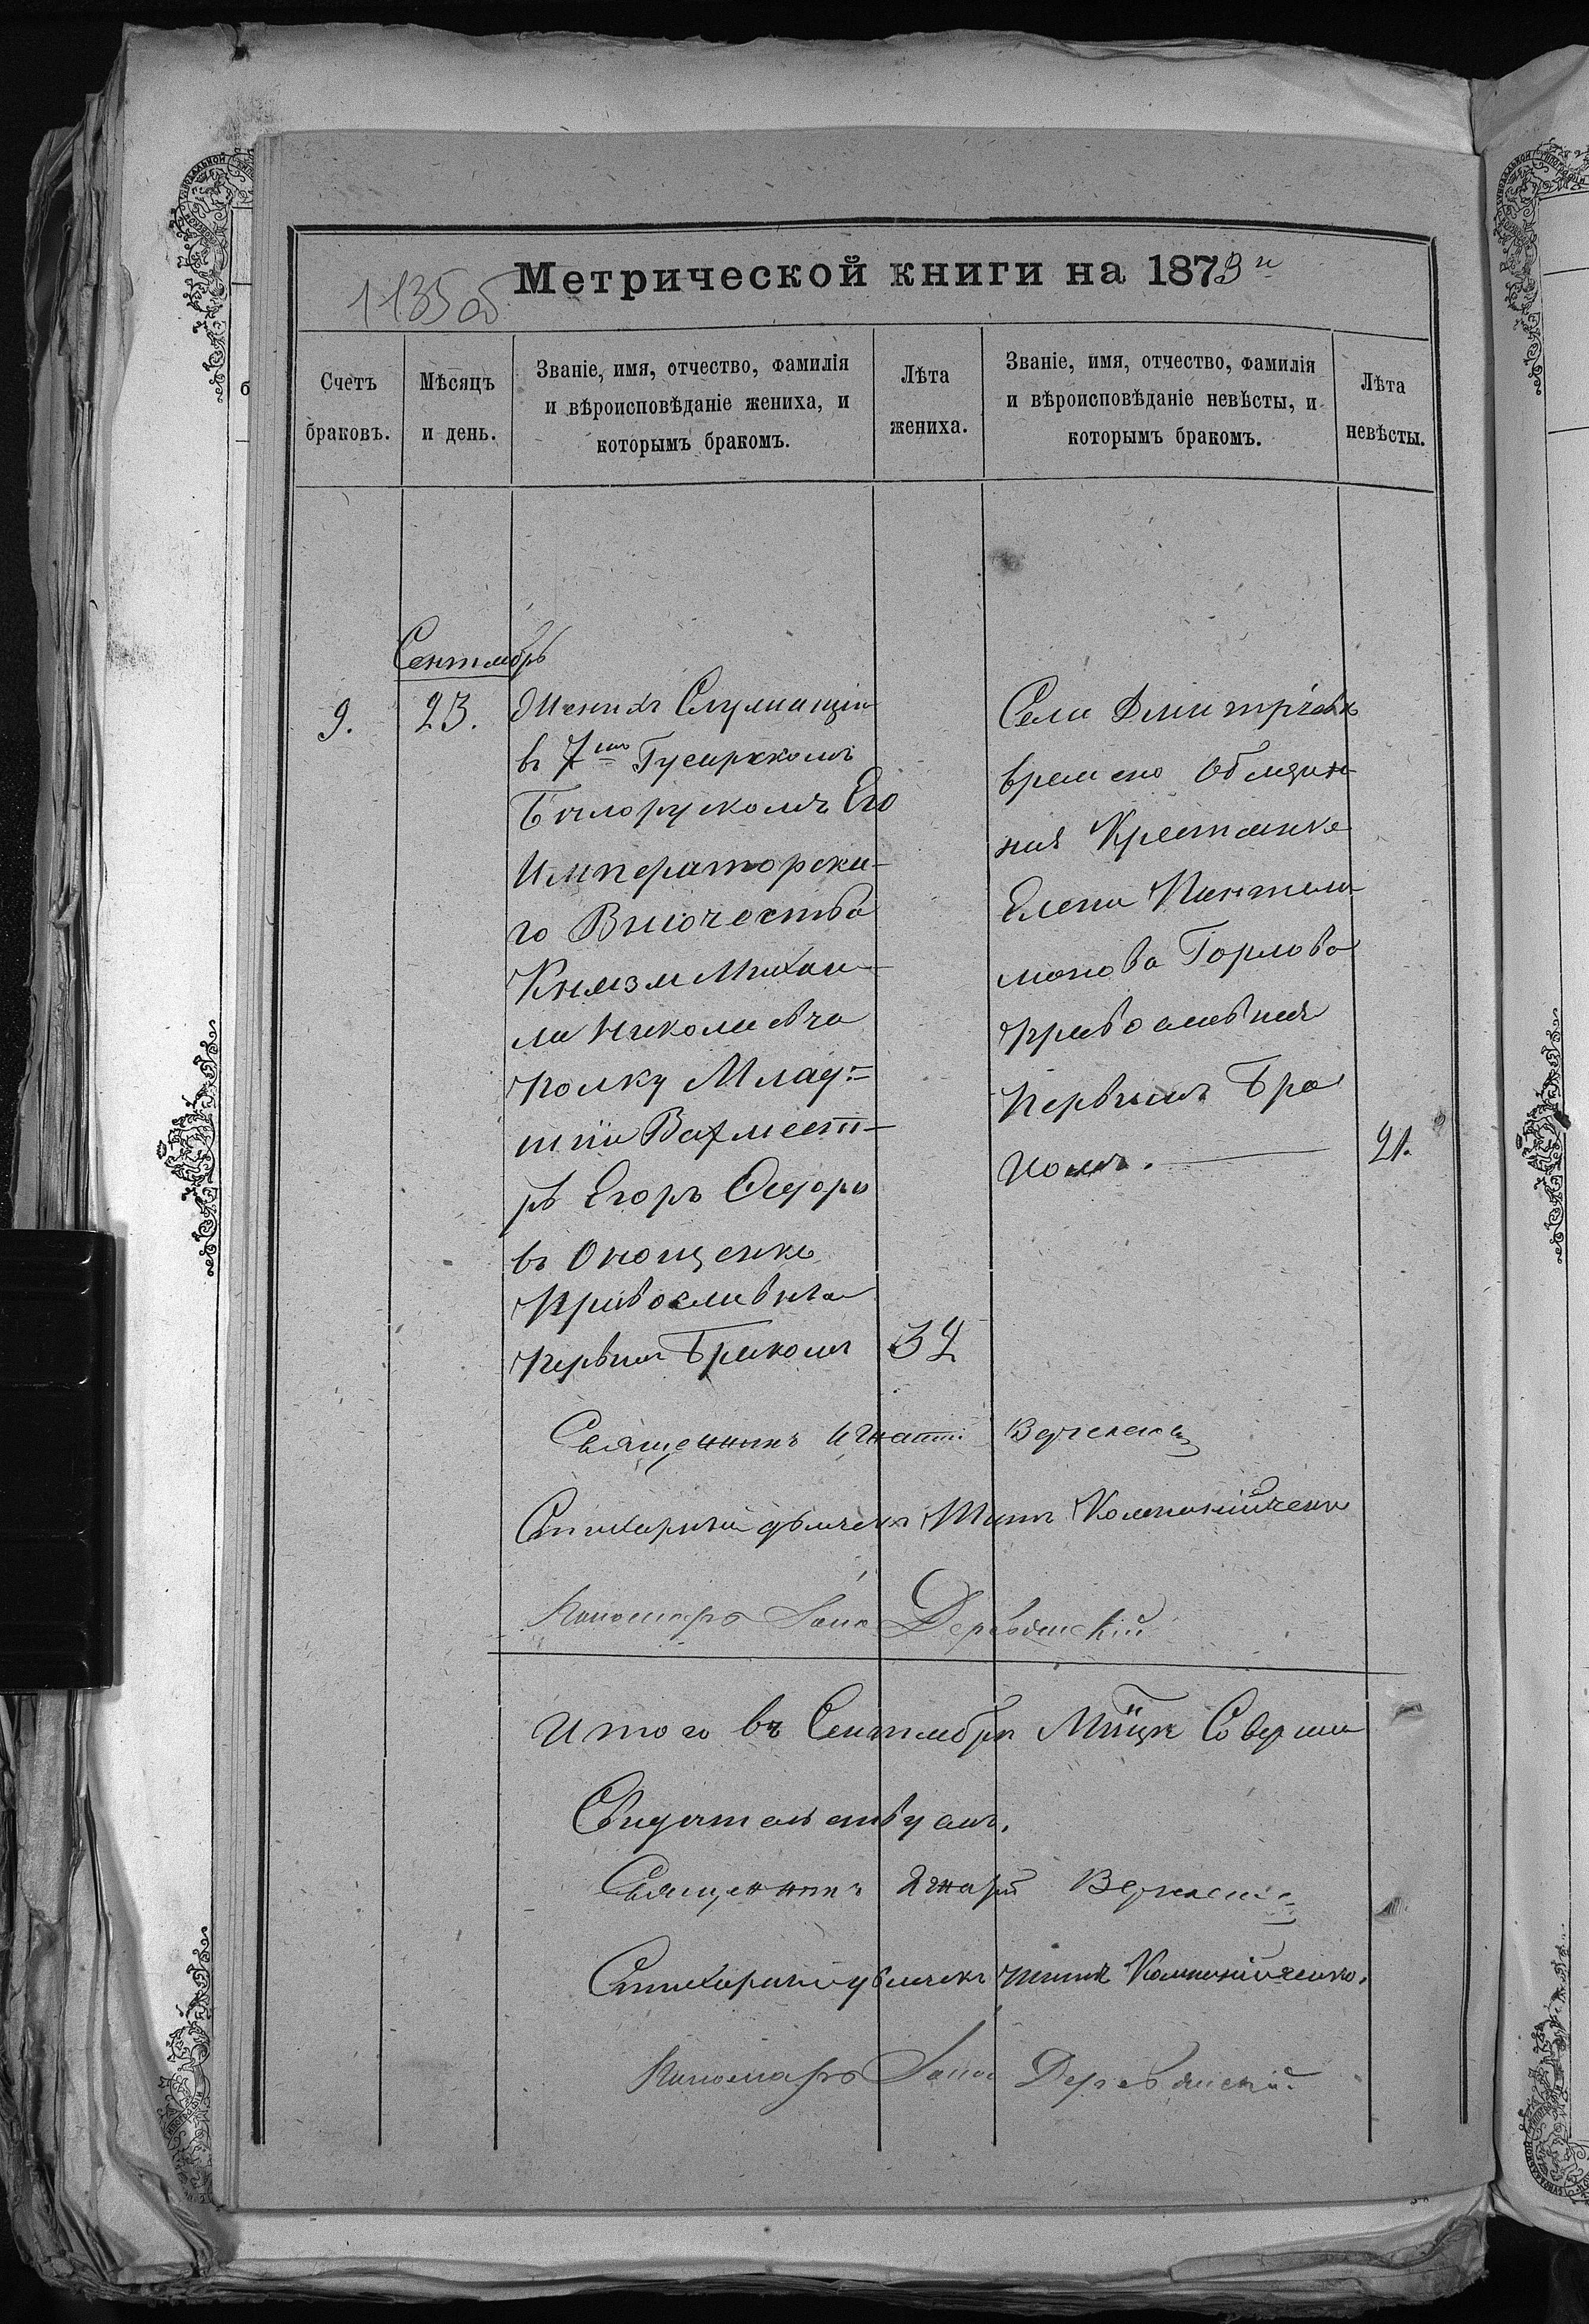 1135об
Метрической книги на 1873 й
Счетъ браковъ.
Мѣсяцъ и день.
Званіе, имя, отчество, фамилія
и вѣроисповѣданіе жениха, и
которымъ бракомъ.
Лѣта жениха.
Званіе, имя, отчество, фамилія
и вѣроисповѣданіе невѣсты, и
которымъ бракомъ.
Лѣта невѣсты.
Сентябрь
9.
23.
Женихъ Служащій
въ 7мъ Гусарскомъ
Бѣлорускомъ Его
Императорска-
го Височества
Князя Михаи-
ла Николаевча
полку Млад-
шій Вахмест-
ръ Егоръ Ѳедоро
въ Онощенко
Православна
первымъ Бракомъ
32
Села Дмитріевк
времено Обязан-
ная Крестянка
Елена Пантели-
монова Горлова
православная
Первымъ Бра
комъ.
21.
Священникъ Игнатій
Стихарный дьячекъ Титъ Компанійченко
Пономарь Деревянский
Итого въ Сентябрѣ Мцѣ Соверши
Свидѣтельствуемъ.
Священникъ Игнатій
Стихарный дьячекъ Титъ Компанійченко.
Пономарь Деревянский.